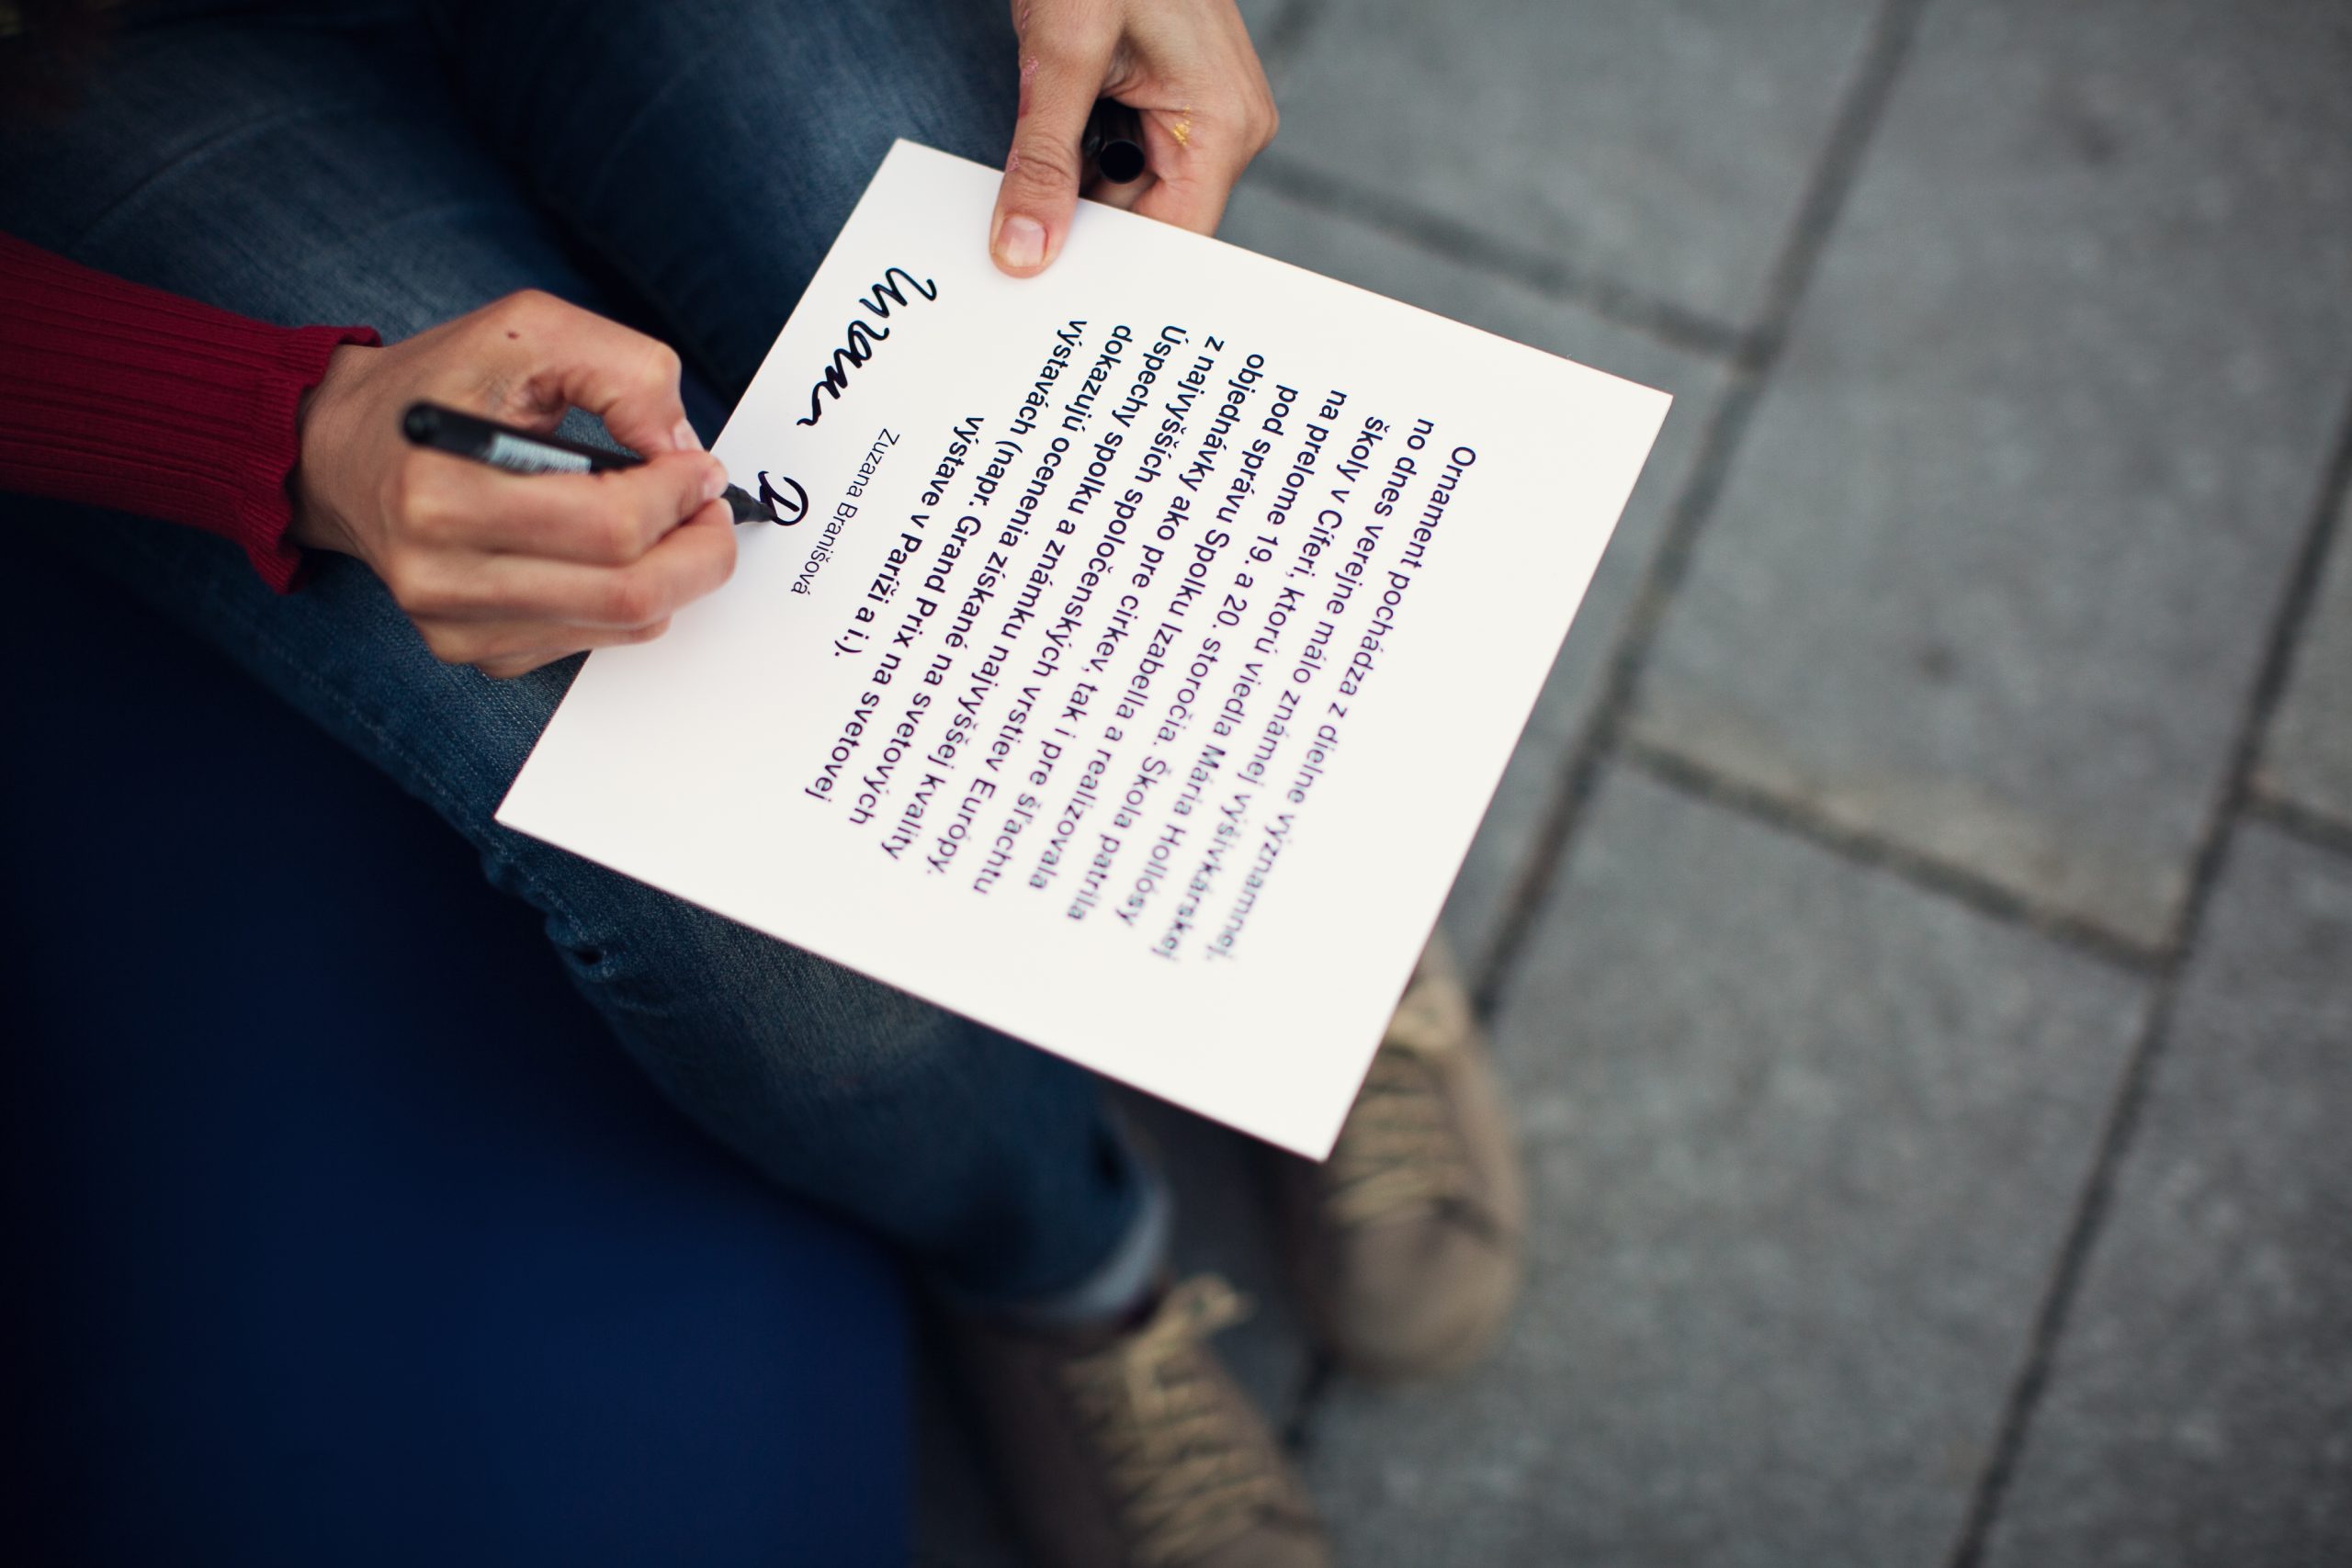 Ornament pochádza z dielne významnej,
no dnes verejne málo známej vyšívkárskej
školy v Cíferi, ktorú viedla Mária Hollósy
na prelome 19. a 20. storočia. Škola patrila
pod správu Spolku Izabella a realizovala
objednávky ako pre cirkev, tak i pre šľachtu
z najvyšších spoločenských vrstiev Európy.
Úspechy spolku a známku najvyššej kvality
dokazujú ocenenia získané na svetových
výstavách (napr. Grand Prix na svetovej
výstave v Paríži a i.).
Zuzana Branišová